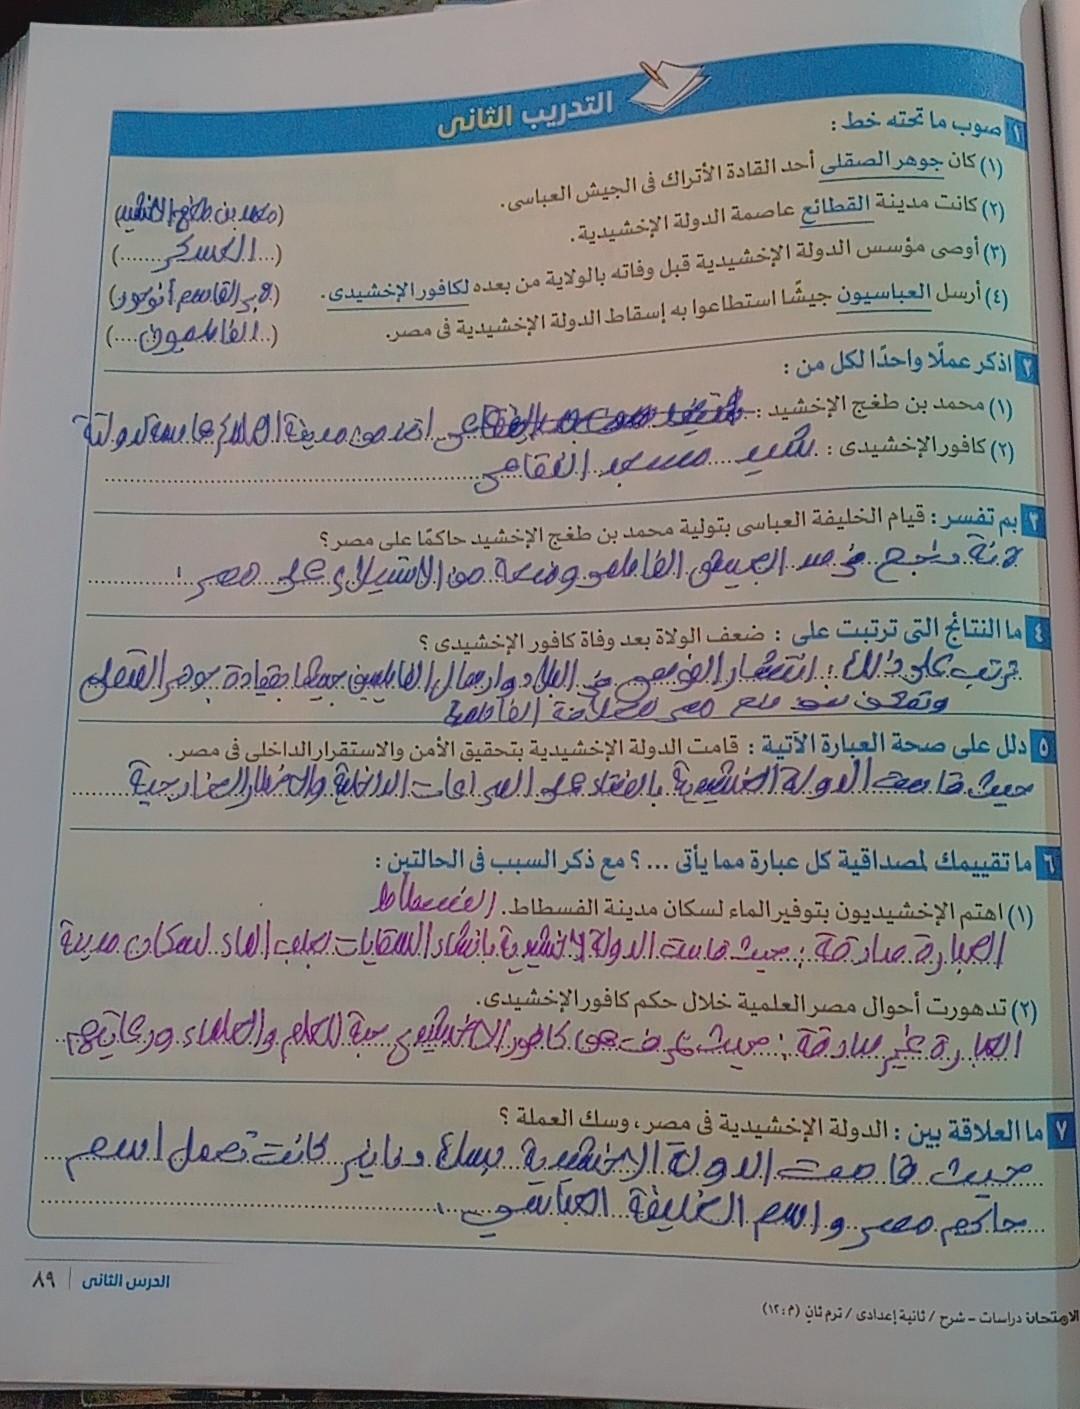 التدريب الثانى
١ صوب ما تحته خط :
(١) كان جوهر الصقلى أحد القادة الأتراك فى الجيش العباسى. (محمد بن طغج الإخشيد)
(٢) كانت مدينة القطائع عاصمة الدولة الإخشيدية. (العسكر)
(٣) أوصى مؤسس الدولة الإخشيدية قبل وفاته بالولاية من بعده لكافور الإخشيدى. (القاسم أنوجور)
(٤) أرسل العباسيون جيشًا استطاعوا به إسقاط الدولة الإخشيدية فى مصر. (الفاطميون)
٢ اذكر عملًا واحدًا لكل من :
(١) محمد بن طغج الإخشيد : اخذ من مدينة العسكر عاصمة لدولته
(٢) كافور الإخشيدى : شيد مسجد الفقاعى
٣ بم تفسر : قيام الخليفة العباسى بتولية محمد بن طغج الإخشيد حاكمًا على مصر؟
لانة نجح فى صد الجيش الفاطمى ومنعة من الاستيلاء على مصر
٤ ما النتائج التى ترتبت على : ضعف الولاة بعد وفاة كافور الإخشيدى ؟
ترتب على ذلك : انتشار الفوضى فى البلاد وارسال الفاطميين جيشا بقيادة جوهر الصقلى
مصر للخلافة الفاطمية
٥ دلل على صحة العبارة الآتية : قامت الدولة الإخشيدية بتحقيق الأمن والاستقرار الداخلى فى مصر.
حيث قامت الدولة الاخشيدية بالقضاء على الصراعات الداخلية والاخطار الخارجية
٦ ما تقييمك لمصداقية كل عبارة مما يأتى ... ؟ مع ذكر السبب فى الحالتين :
(١) اهتم الإخشيديون بتوفير الماء لسكان مدينة الفسطاط. الفسطاط
العبارة صادقة : حيث قامت الدولة الاخشيدية بانشاء السقايات لجلب الماء لسكان مدينة
(٢) تدهورت أحوال مصر العلمية خلال حكم كافور الإخشيدى.
العبارة غير صادقة : حيث عرف عن كافور الاخشيدى حبة للعلم والعلماء ورعايتهم
٧ ما العلاقة بين : الدولة الإخشيدية فى مصر، وسك العملة ؟
حيث قامت الدولة الاخشيدية بسك دنانير كانت تحمل اسم
حاكم مصر واسم الخليفة العباسي
الدرس الثانى | ٨٩
الامتحان دراسات - شرح / ثانية إعدادى / ترم ثانٍ (م : ١٢)